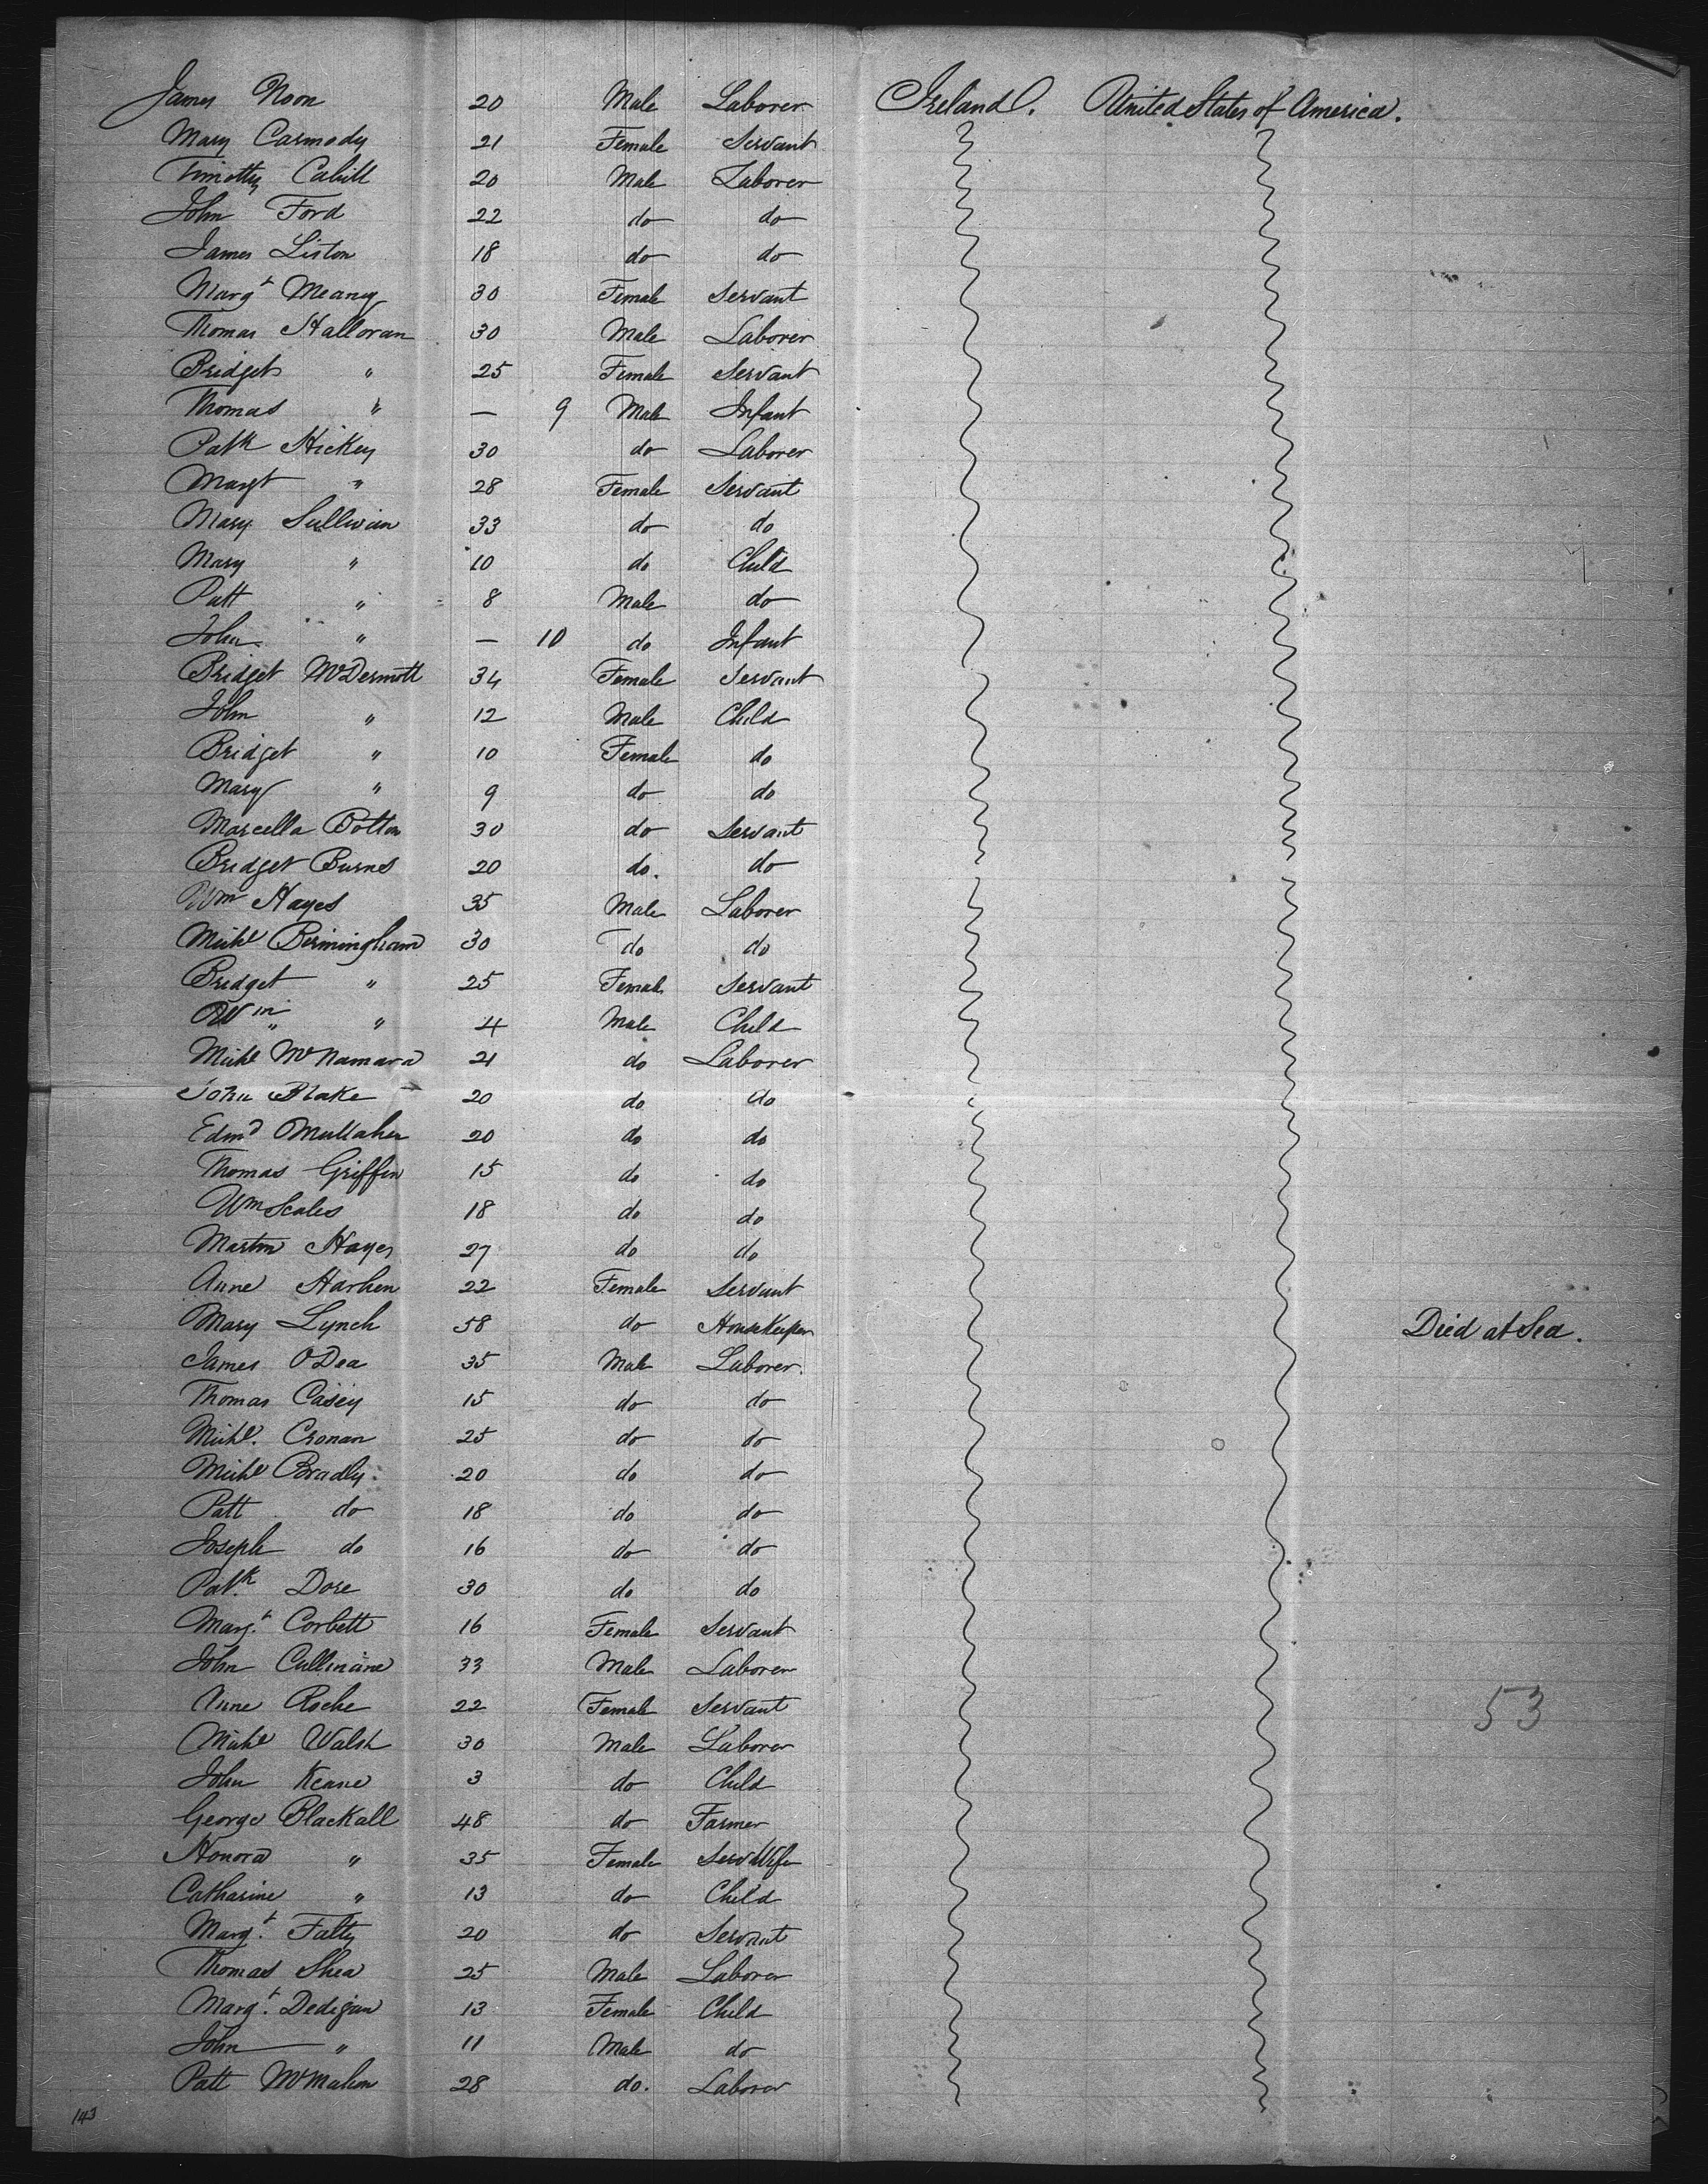 James Noon 20 Male Laborer Ireland. United States of America.
Mary Carmody 21 Female Servant
Timothy Cahill 20 Male Laborer
John Ford 22 do do
James Liston 18 do do
Margt Meany 30 Female Servant
Thomas Halloran 30 Male Laborer
Bridget " 25 Female Servant
Thomas " — 9 Male Infant
Patk Hickey 30 do Laborer
Margt " 28 Female Servant
Mary Sullivan 33 do do
Mary " 10 do Child
Patt " 8 Male do
John " — 10 do Infant
Bridget McDermott 34 Female Servant
John " 12 Male Child
Bridget " 10 Female do
Mary " 9 do do
Marcella Botton 30 do Servant
Bridget Burns 20 do. do
Wm Hayes 35 Male Laborer
Michl Birmingham 30 do do
Bridget " 25 Female Servant
Wm " 4 Male Child
Michl McNamara 21 do Laborer
John Blake 20 do do
Edmd Mullaher 20 do do
Thomas Griffin 15 do do
Wm Scales 18 do do
Martin Hayes 27 do do
Anne Harhen 22 Female Servant
Mary Lynch 58 do HouseKeeper Died at Sea.
James O'Dea 35 Male Laborer.
Thomas Casey 15 do do
Michl. Cronan 25 do do
Michl Bradly 20 do do
Patt do 18 do do
Joseph do 16 do do
Patk. Dore 30 do do
Margt. Corbett 16 Female Servant
John Cullinane 33 Male Laborer
Anne Roche 22 Female Servant
53
Michl Walsh 30 Male Laborer
John Keane 3 do Child
George Blackall 48 do Farmer
Honora " 35 Female Wife
Catharine " 13 do Child
Margt. Falty 20 do Servant
Thomas Shea 25 Male Laborer
Margt. Dedigan 13 Female Child
John " 11 Male do
Patt McMahon 28 do. Laborer
143